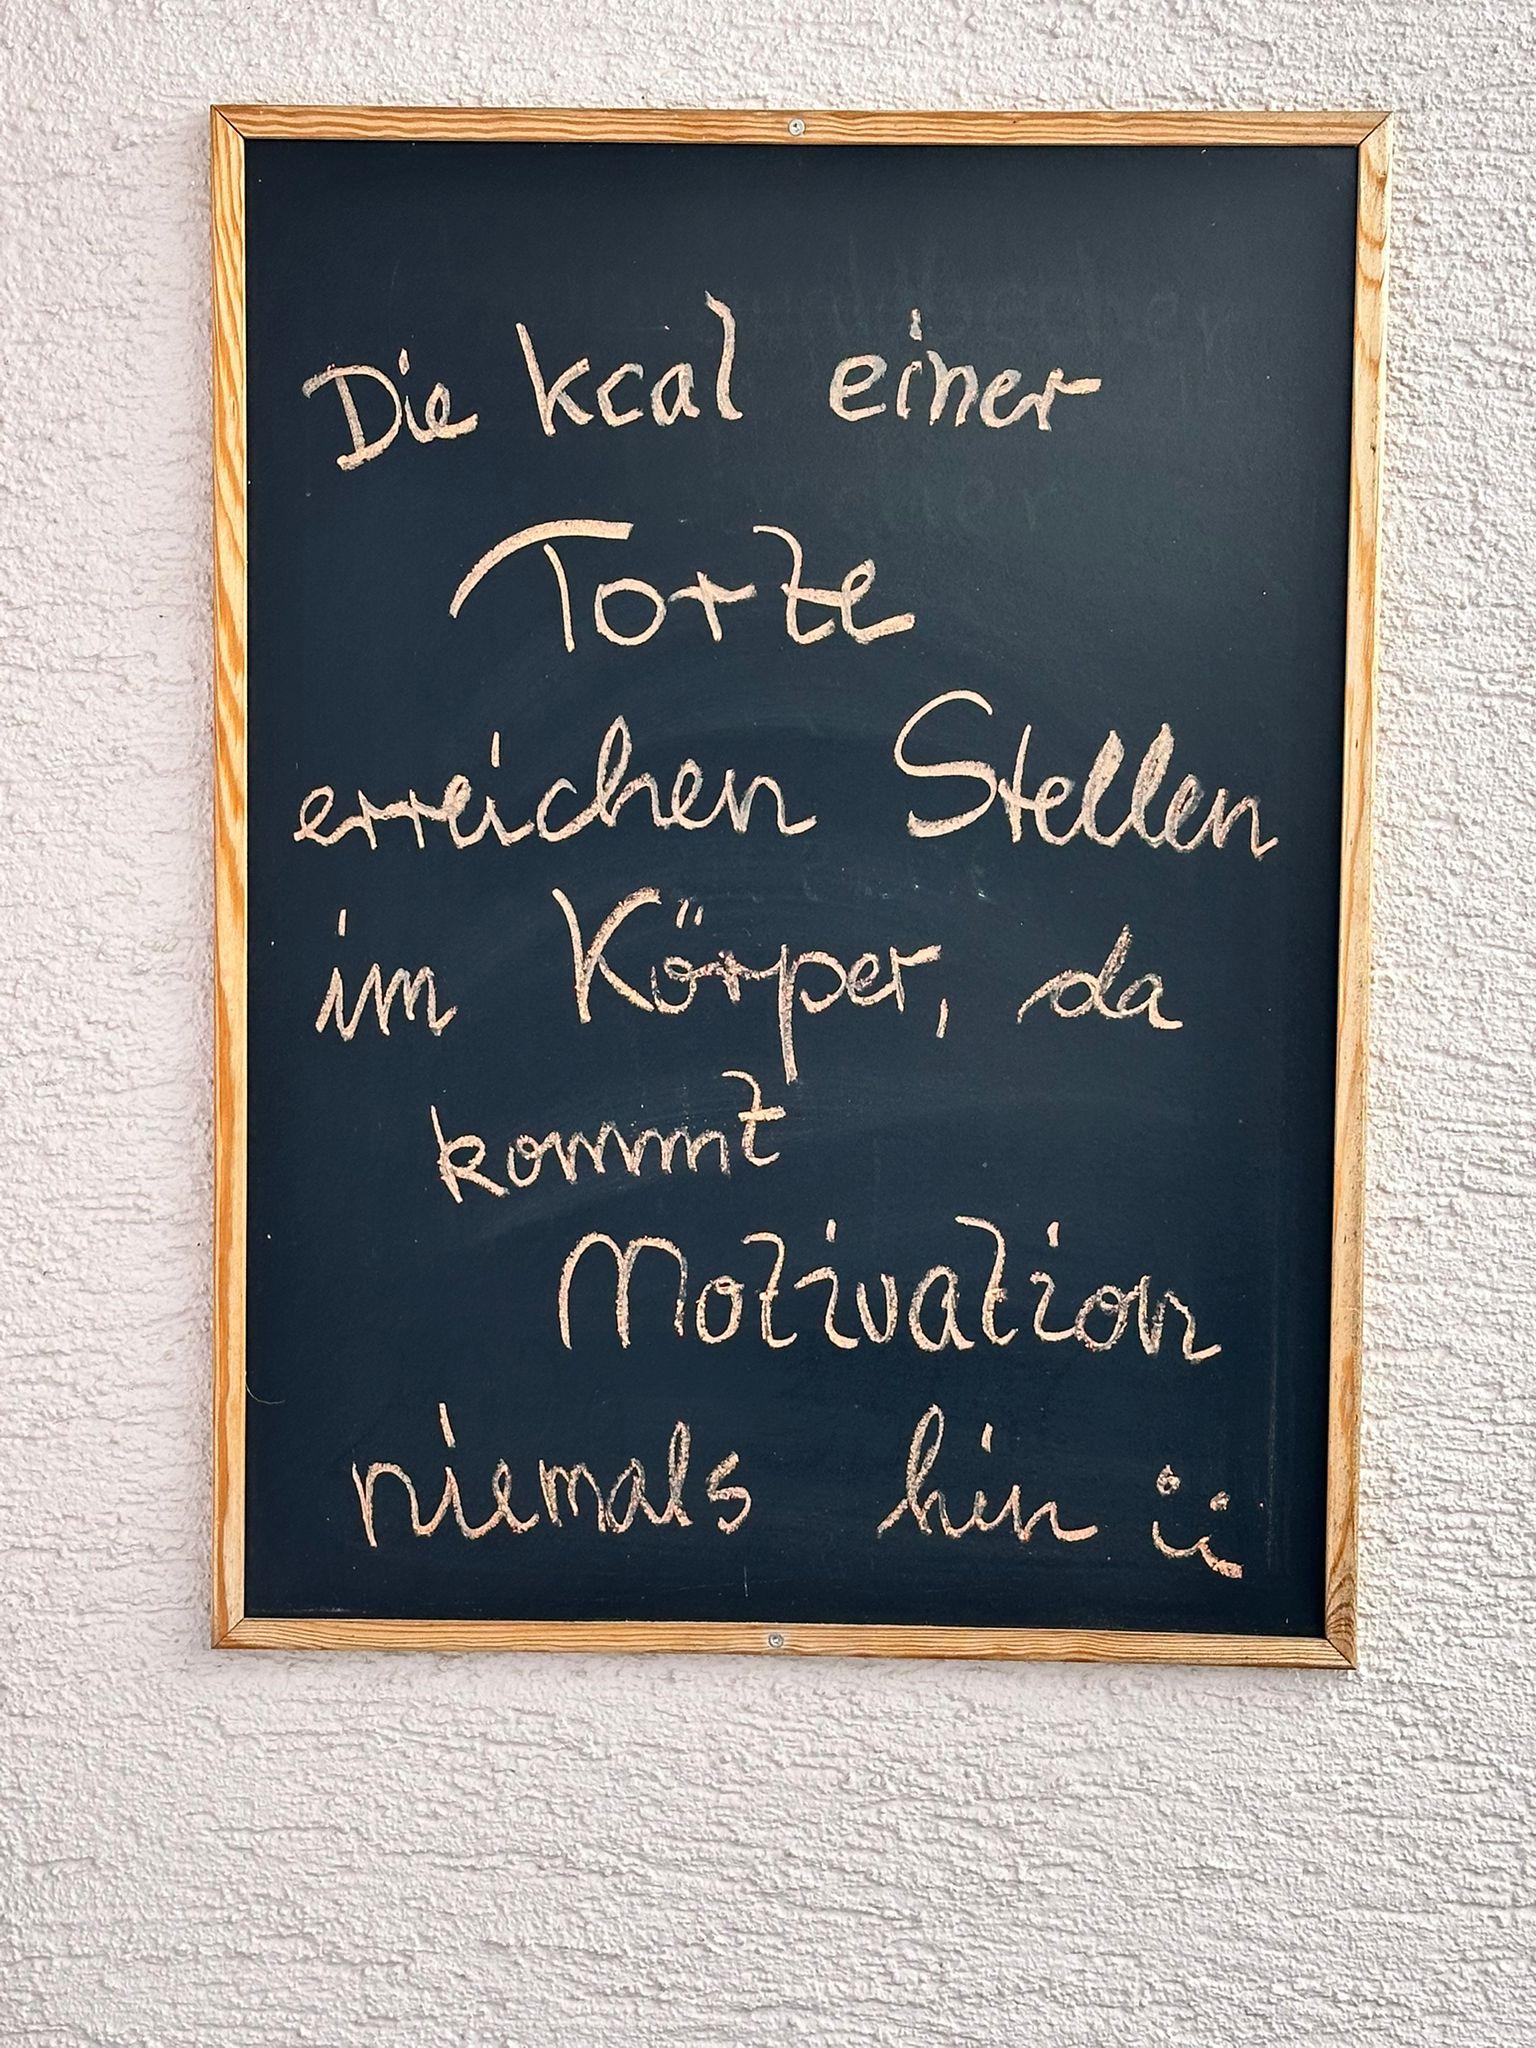 Die kcal einer
Torte
erreichen Stellen
im Körper, da
kommt
Motivation
niemals hin